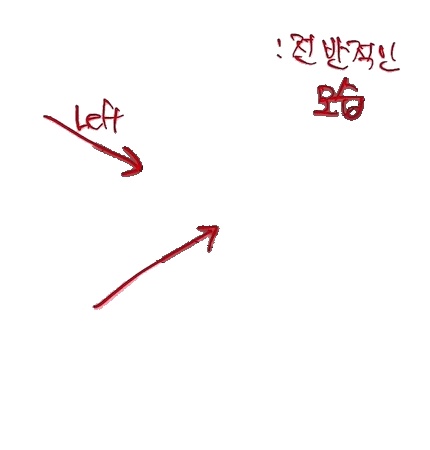 : 전반적인
모습
Left